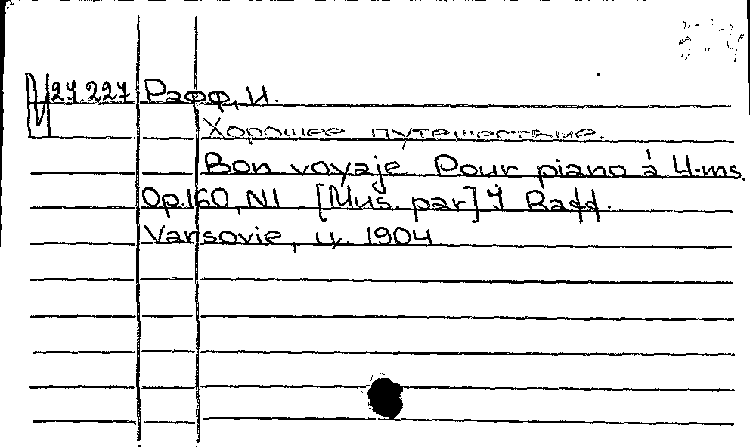 И 27 227 Рафф, И.
Хорошее путешествие.
Bon voyaje Pour piano á 4-ms.
Op.160, N1 [Mus. par] Y Raff.
Varsovie, ц. 1904